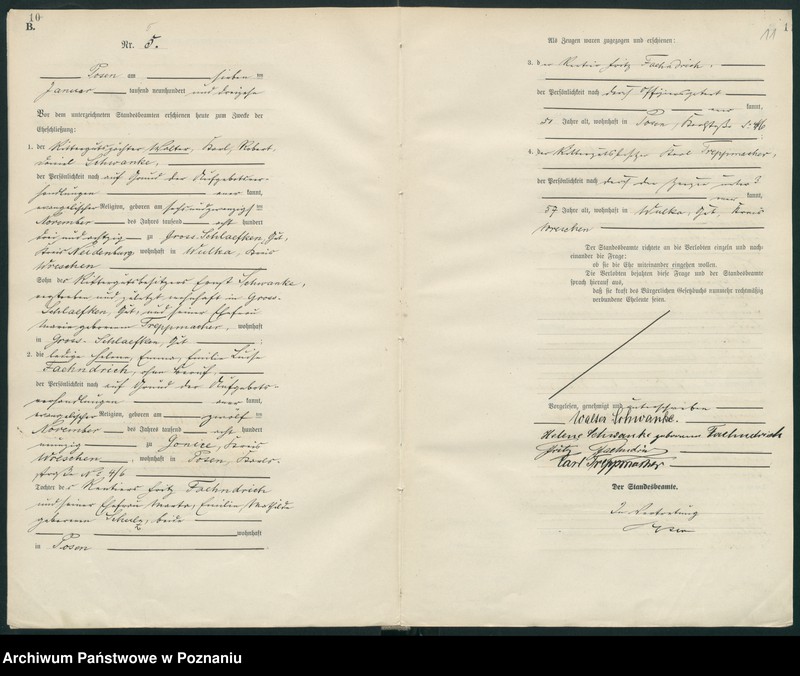 10
B.
Nr. 5.
Posen am sieben ten
Januar tausend neunhundert und dreizehn
Vor dem unterzeichneten Standesbeamten erschienen heute zum Zwecke der
Eheschließung:
1. der Rittergutspächter Walter, Karl, Robert,
Daniel Schwanke,
der Persönlichkeit nach auf Grund der Aufgebotsver-
handlungen aner kannt,
evangelischer Religion, geboren am sechsundzwanzigsten
November des Jahres tausend acht hundert
drei und achtzig zu Gross-Schlaefken, Gut,
Kreis Neidenburg wohnhaft in Wulka, Kreis
Wreschen
Sohn des Rittergutsbesitzers Ernst Schwanke,
verstorben und zuletzt wohnhaft in Gross-
Schlaefken, Gut, und seiner Ehefrau
Marie geborenen Treppmacher, wohnhaft
in Gross-Schlaefken, Gut ;
2. die ledige Helene, Emma, Emilie Luise
Faehndrich, ohne Beruf,
der Persönlichkeit nach auf Grund der Aufgebots-
verhandlungen aner kannt,
evangelischer Religion, geboren am zwölf ten
November des Jahres tausend acht hundert
neunzig zu Gonice, Kreis
Wreschen, wohnhaft in Posen, Karl-
straße No 4/6
Tochter des Rentiers Fritz Faehndrich
und seiner Ehefrau Marta, Emilie, Mathilde
geborenen Schulz, beide
wohnhaft
in Posen
11
Als Zeugen waren zugezogen und erschienen:
3. der Rentier Fritz Faehndrich,
der Persönlichkeit nach durch
aner kannt,
51 Jahre alt, wohnhaft in Posen, Karlstraße 4/6
4. der Rittergutsbesitzer Karl Treppmacher,
der Persönlichkeit nach durch den Zeugen unter 3
aner kannt,
57 Jahre alt, wohnhaft in Wulka, Gut, Kreis
Wreschen
Der Standesbeamte richtete an die Verlobten einzeln und nach-
einander die Frage:
ob sie die Ehe miteinander eingehen wollen.
Die Verlobten bejahten diese Frage und der Standesbeamte
sprach hierauf aus,
daß sie kraft des Bürgerlichen Gesetzbuchs nunmehr rechtmäßig
verbundene Eheleute seien.
Vorgelesen, genehmigt und unterschrieben
Walter Schwanke.
Helene Schwanke geborene Faehndrich
Fritz Faehndrich
Karl Treppmacher
Der Standesbeamte.
In Vertretung
Archiwum Państwowe w Poznaniu